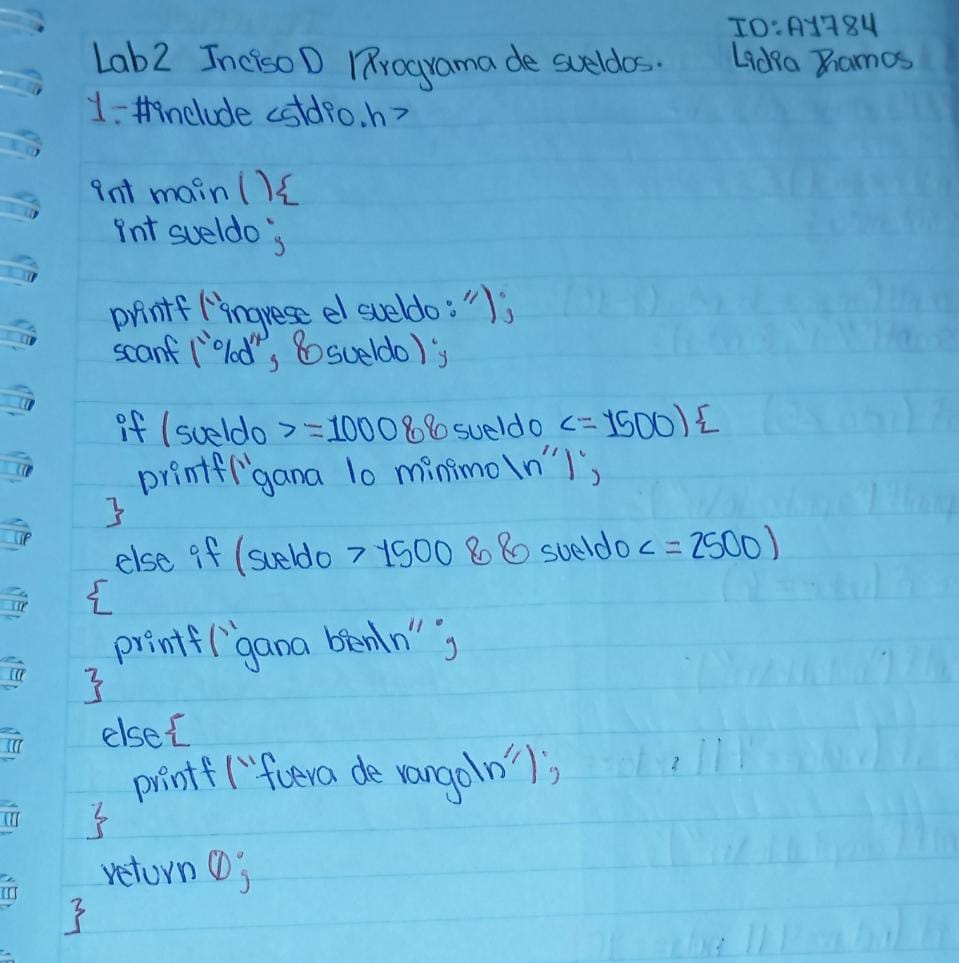 ID: AY784
Lab2 Inciso D Programa de sueldos. Lidia Ramos
1.- #include <stdio.h>
int main (){
int sueldo;
printf ("ingrese el sueldo:");
scanf ("%d", &sueldo);
if (sueldo >=1000 && sueldo <=1500){
printf("gana lo minimo\n");
}
else if (sueldo > 1500 && sueldo <= 2500)
{
printf("gana bien\n";
}
else{
printf ("fuera de rango\n");
}
return 0;
}